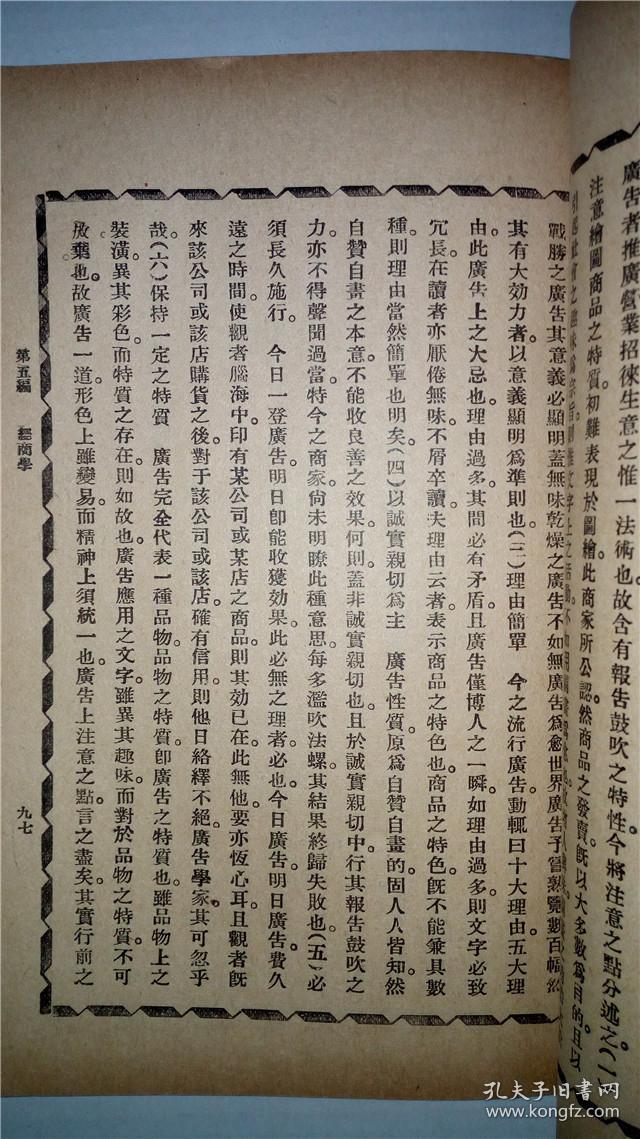 廣告者推廣營業招徠生意之惟一法術也故含有報告鼓吹之特性今將注意之點分述之(一
注意繪圖商品之特質。初難表現於圖繪。此商家所公認。然商品之發賣。既以大多數爲目的。且以
戰勝之廣告其意義必顯明蓋無味乾燥之廣告不如無廣告爲愈世界廣告予嘗製覽數百幅欲
其有大効力者。以意義顯明爲準則也(三)理由簡單　今之流行廣告。動輒曰十大理由五大理
由。此廣告上之大忌也。理由過多。其間必有矛盾。且廣告僅博人之一瞬。如理由過多。則文字必致
冗長。在讀者亦厭倦無味。不屑卒讀。夫理由云者。表示商品之特色也。商品之特色。既不能兼具數
種。則理由當然簡單也明矣(四)以誠實親切爲主　廣告性質。原爲自贊自畫的。固人人皆知。然
自贊自畫之本意。不能收良善之效果。何則。蓋非誠實親切也。且於誠實親切中。行其報告鼓吹之
力。亦不得聲聞過當。特今之商家。尙未明瞭此種意思。每多濫吹法螺。其結果終歸失敗也(五)必
須長久施行　今日一登廣告。明日卽能收獲效果。此必無之理者必也。今日廣告。明日廣告。費久
遠之時間。使觀者腦海中。印有某公司或某店之商品。則其効已在。此無他。要亦恆心耳。且觀者既
來該公司或該店購貨之後。對于該公司或該店。確有信用。則他日絡繹不絕。廣告學家。其可忽乎
哉。(六)保持一定之特質　廣告完全代表一種品物。品物之特質。卽廣告之特質也。雖品物上之
裝潢。異其彩色。而特質之存在。則如故也。廣告應用之文字。雖異其趣味。而對於品物之特質。不可
放棄也。故廣告一道。形色上雖變易。而精神上須統一也。廣告上注意之點。言之盡矣。其實行前之
第五編　經商學　九七
孔夫子旧書网
www.kongfz.com